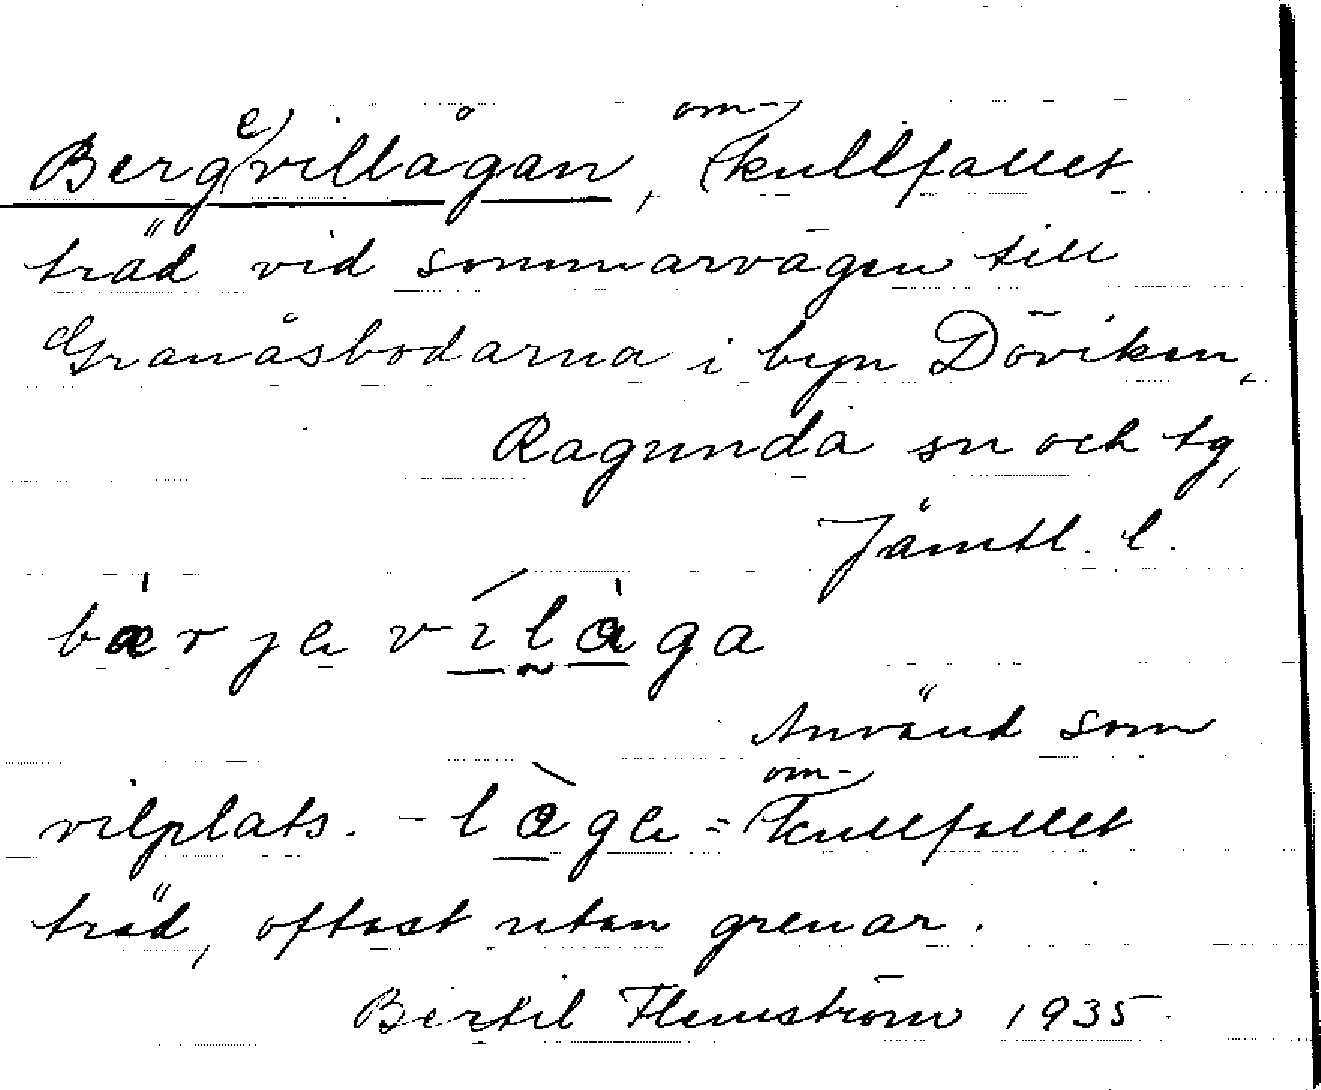 Bergevillågan, omkullfallet
träd vid sommarvägen till
Granåsbodarna i byn Döviken,
Ragunda sn och tg,
Jämtl. l.
bærje vılåga
Använd som
vilplats. - låge = omkullfallet
träd, oftast utan grenar.
Bertil Flemström 1935